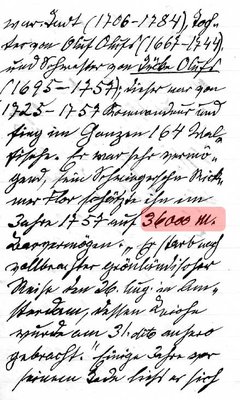 war Indt (1706-1784), Toch-
ter von Oluf Olufs (1667-1744)
und Schwester von Dirke Olufs
(1695-1757); dieser war von
1725-1757 Kommandeur und
fing im Ganzen 164 Wal-
fische. Er war sehr vermö-
gend, sein Schwiegersohn Rick-
mer Flor schätzte ihn im
Jahre 1757 auf 36000 M.
Barvermögen. „Er starb nach
vollbrachter grönländischer
Reise den 26. Aug. in Am-
sterdam, dessen Leiche
wurde am 31. dito anhero
gebracht.“ Einige Jahre vor
seinem Tode ließ er sich